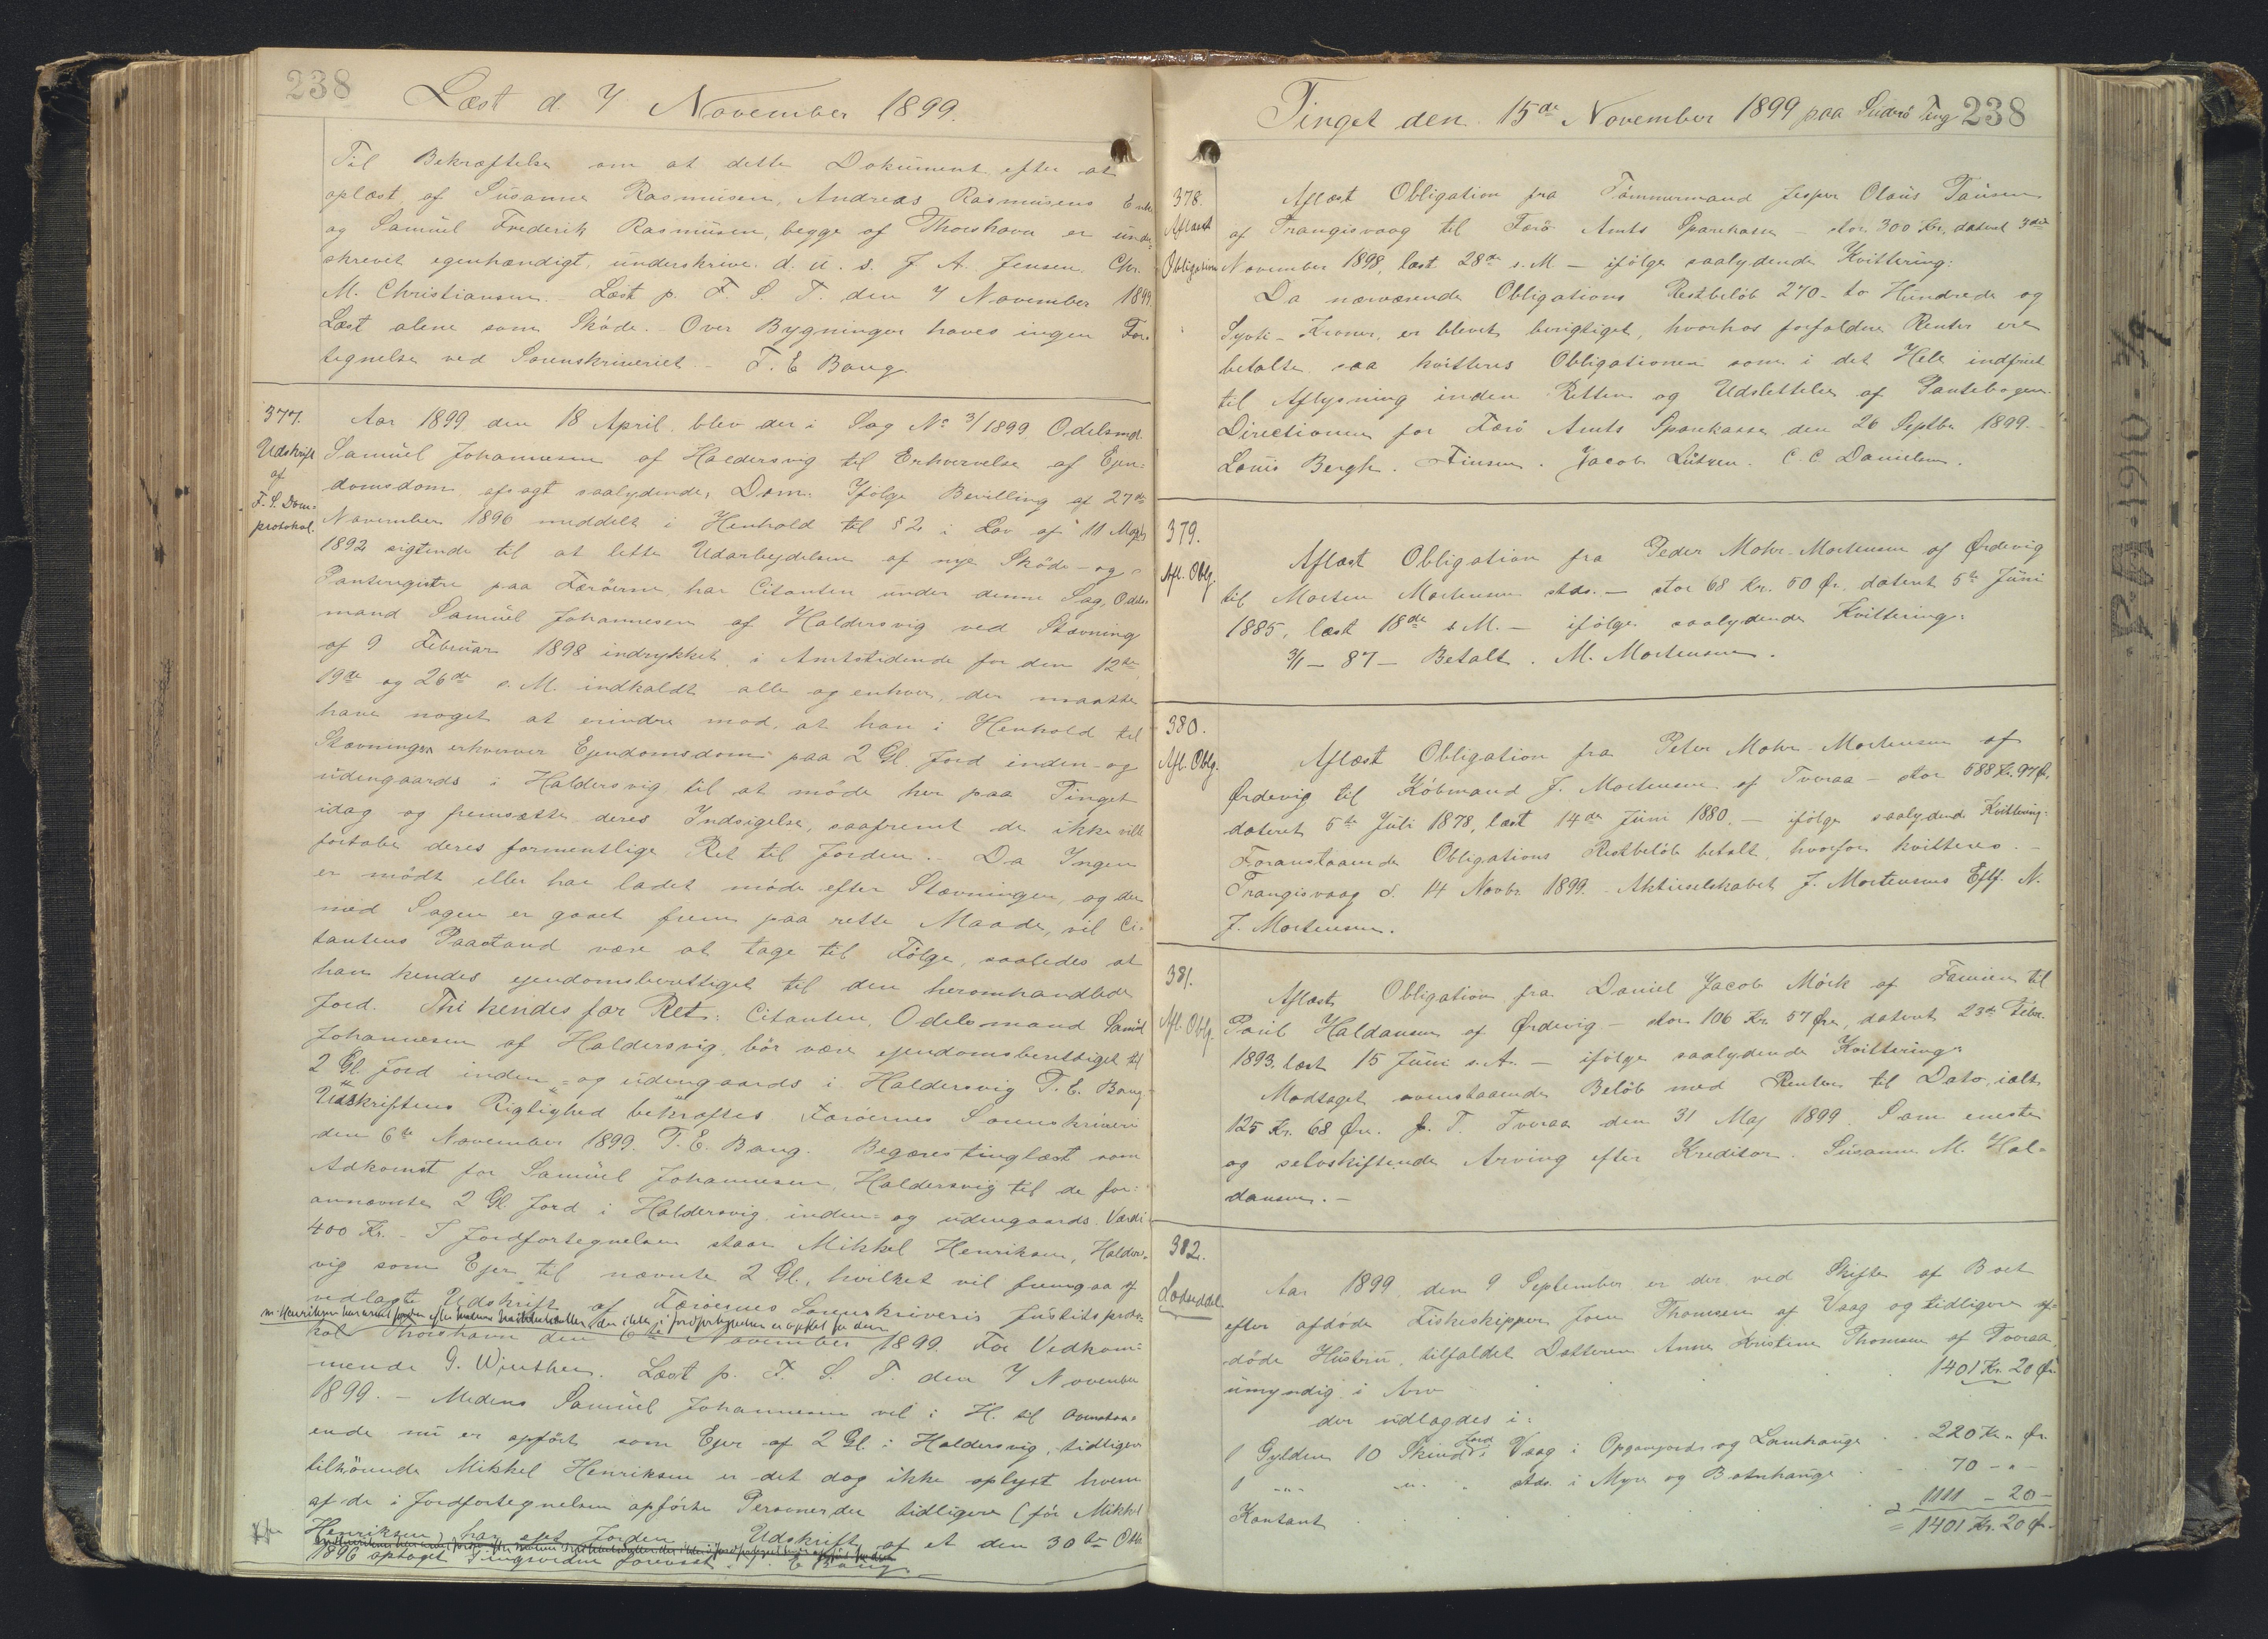 238
Læst d. 7 November 1899.
Til Bekræftelse om at dette Dokument efter at
oplæst af Susanne Rasmusen, Andreas Rasmusens Enke
og Samuel Frederik Rasmusen, begge af Thorshavn er unde=
skrevet egenhændigt, underskrive d. u. s. J A. Jensen. Chr.
M. Christiansen. Læst p. F. S. T. den 7 November 1899.
Læst alene som Skøde. - Over Bygninger haves ingen For-
tegnelse ved Sorenskriveriet. - T. E Bang.
377.
Udskrift
af
F. S. Dom=
protokol.
Aar 1899 den 18 April blev der i Sag No 3/1899 Odelsmd.
Samuel Johannesen af Haldersvig til Erhvervelse af Ejen=
domsdom afsagt saalydende, Dom: Ifølge Bevilling af 27de
November 1896 meddelt i Henhold til § 2 i Lov af 11 Maj
1892 sigtende til at lette Udarbejdelsen af nye Skøde- og
Panteregistre paa Færøerne, har Citanten under denne Sag, Odels
mand Samuel Johannesen af Haldersvig ved Stævning
af 9 Februar 1898 indrykket i Amtstidende for den 12te
19de og 26de s. M. indkaldt alle og enhver, der maatte
have noget at erindre mod, at han i Henhold til
Stævningen erhverver Ejendomsdom paa 2 Gl. Jord inden- og
udengaards i Haldersvig til at møde her paa Tinget
idag og fremsætte deres Indsigelse, saafremt de ikke ville
fortabe deres formentlige Ret til Jorden. - Da Ingen
er mødt eller har ladet møde efter Stævningen, og der
med Sagen er gaaet frem paa rette Maade, vil Ci-
tantens Paastand være at tage til Følge, saaledes at
han kendes ejendomsberettiget til den heromhandlede
Jord. Thi kendes for Ret: Citanten, Odelsmand Samuel
Johannesen af Haldersvig, bør være ejendomsberettiget til
2 Gl. Jord inden- og udengaards i Haldersvig T. E. Bang
Udskriftens Rigtighed bekræftes Færøernes Sorenskriveri
den 6te November 1899. T. E. Bang. Begæres tinglæst som
Adkomst for Samuel Johannesen, Haldersvig til de for=
annævnte 2 Gl. Jord i Haldersvig inden- og udengaards. Værdi
400 Kr. - I Jordfortegnelsen staar Mikkel Henriksen, Halders=
vig som Ejer til nævnte 2 Gl., hvilket vil fremgaa af
vedlagte Udskrift af Færøernes Sorenskriveris Justitsproto-
kol Thorshavn den 6te November 1899. For Vedkom=
mende G. Winther. Læst p. F. S. T. den 7 November
1899. - Medens Samuel Johannesen vil i H. til Ovenstaa=
ende nu er opført som Ejer af 2 Gl. i Haldersvig, tidligere
tilhørende Mikkel Henriksen er det dog ikke oplyst hvem
af de i Jordfortegnelsen opførte Personer der tidligere (før Mikkel
Henriksen) har ejet Jorden. Udskrift af et den 30te Oktb.
1896 optaget Tingsvidne forevist. T. E Bang.
Tinget den 15de November 1899 paa Suderø Ting 238
378.
Aflæst
Obligation
Aflæst Obligation fra Tømmermand Jesper Olaus Tausen
af Trangisvaag til Færø Amts Sparekasse - stor 300 Kr., dateret 3die
November 1898, læst 28de s. M - ifølge saalydende Kvittering:
Da nærværende Obligations Restbeløb 270 - to Hundrede og
Syvti - Kroner, er blevet berigtiget, hvorhos forfaldne Renter ere
betalte, saa kvitteres Obligationen som i det Hele indfriet
til Aflysning inden Retten og Udslettelse af Pantebogen.
Directionen for Færø Amts Sparekasse den 26 Septbr 1899. -
Louis Bergh. Finsen. Jacob Lützen. C. C. Danielsen.
379.
Afl. Oblg.
Aflæst Obligation fra Peder Mohr Mortensen af Ørdevig
til Morten Mortensen stds. - stor 68 Kr. 50 Ør. dateret 5te Juni
1885, læst 18de s. M. - ifølge saalydende Kvittering:
3/1 - 87 - Betalt. M. Mortensen.
380.
Afl. Oblg.
Aflæst Obligation fra Peter Mohr Mortensen af
Ørdevig til Købmand J. Mortensen af Tveraa - stor 588 Kr. 97 Ør.
dateret 5te Juli 1878, læst 14de Juni 1880 - ifølge saalydende Kvittering:
Foranstaaende Obligations Restbeløb betalt, hvorfor kvitteres. -
Trangisvaag d. 14 Novbr. 1899. Aktieselskabet J. Mortensens Eftf. N.
J. Mortensen.
381.
Afl. Oblg.
Aflæst Obligation fra Daniel Jacob Mørk af Famien til
Poul Haldansen af Ørdevig - stor 106 Kr. 57 Øre, dateret 23de Febr.
1893, læst 15 Juni s. A. - ifølge saalydende Kvittering:
Modtaget ovenstaaende Beløb med Renter til Dato, ialt
125 Kr. 68 Øre. p. T. Tveraa den 31 Maj 1899. Som eneste
og selvskiftende Arving efter Kreditor. Susanne M. Hal=
dansen. -
382.
Lodseddel
Aar 1899 den 9 September er der ved Skifte af Boet
efter afdøde Fiskeskipper Joen Thomsen af Vaag og tidligere af=
døde Hustru, tilfaldet Datteren Anna Kristine Thomsen af Tveraa,
umyndig i Arv 1401 Kr. 20 Ør.
der udlagdes i:
1 Gylden 10 Skind Jord i Vaag i Opgangjords og Lamhauge 220 Kr. " Ør.
1 -"- " stds. i Myre og Botnhauge 70 - " -
Kontant 1111 - 20 -
= 1401 Kr. 20 Ø.